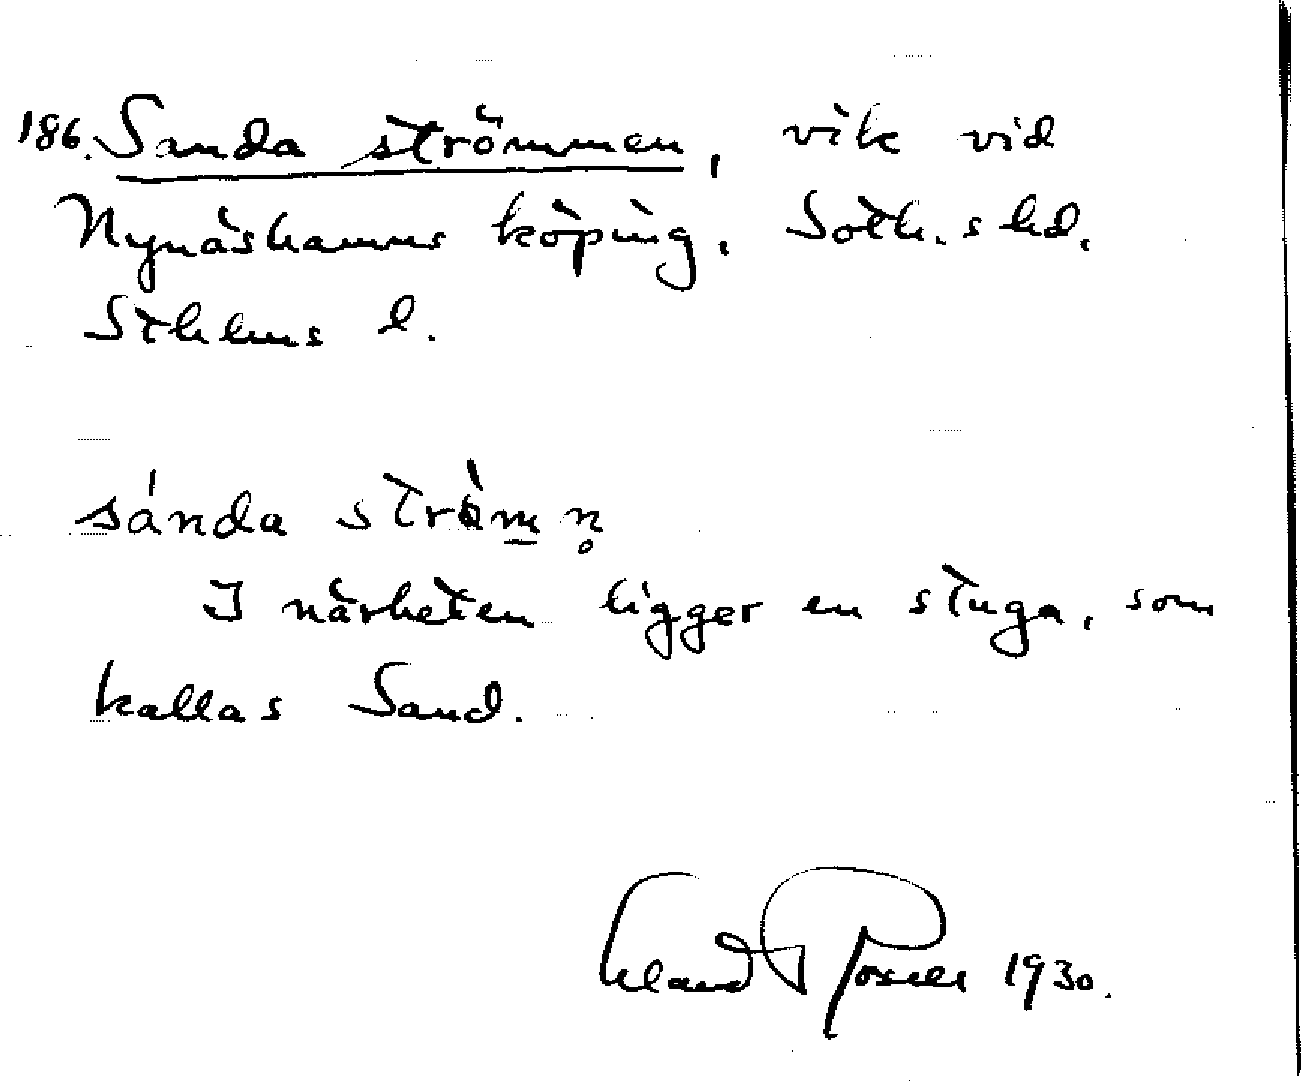 186. Sanda strömmen, vik vid
Nynäshamns köping, Soth.s hd.
Sthlms l.
sánda strömn
I närheten ligger en stuga, som
kallas Sand.
Erland Rosell 1930.